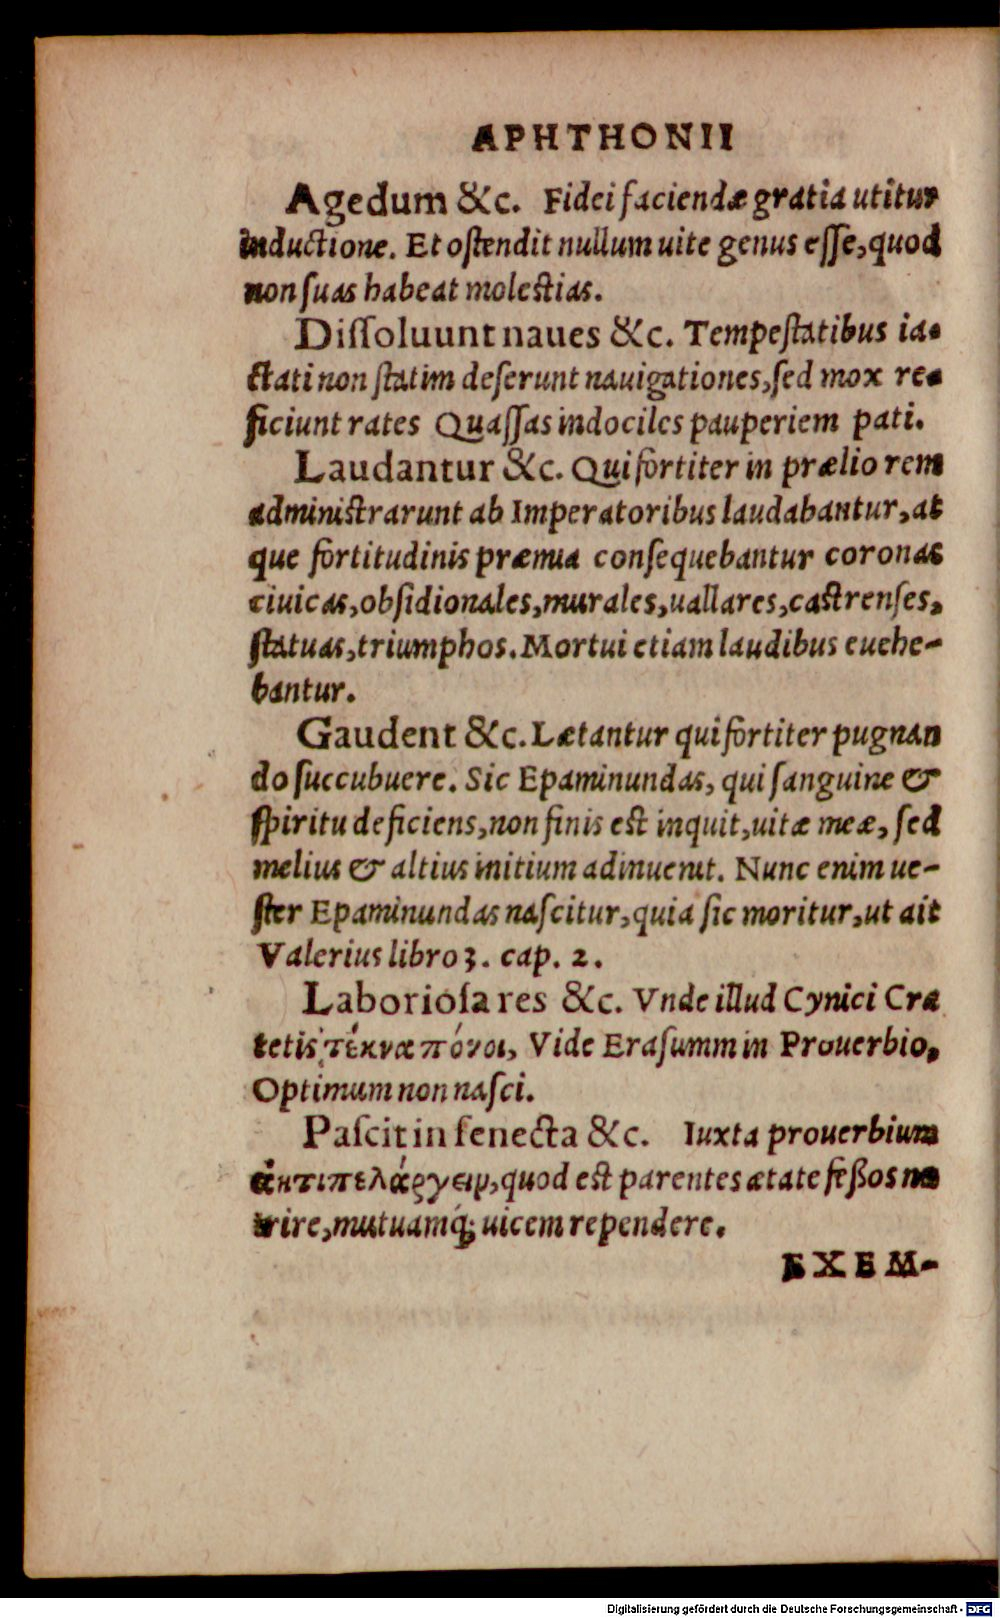 APHTHONII
Agedum &c. Fidei faciendæ gratia utitur
inductione. Et ostendit nullum uite genus esse, quod
non suas habeat molestias.
Dissoluunt naues &c. Tempestatibus ia-
ctati non statim deserunt nauigationes, sed mox re-
ficiunt rates Quassas indociles pauperiem pati.
Laudantur &c. Qui fortiter in prælio rem
administrarunt ab Imperatoribus laudabantur, at
que fortitudinis præmia consequebantur coronas
ciuicas, obsidionales, murales, uallares, castrenses,
statuas, triumphos. Mortui etiam laudibus euehe-
bantur.
Gaudent &c. Lætantur qui fortiter pugnan
do succubuere. Sic Epaminundas, qui sanguine &
spiritu deficiens, non finis est inquit, uitæ meæ, sed
melius & altius initium adinuenit. Nunc enim ue-
ster Epaminundas nascitur, quia sic moritur, ut ait
Valerius libro 3. cap. 2.
Laboriosa res &c. Vnde illud Cynici Cra
tetis τέκνα πόνοι, Vide Erasumm in Prouerbio,
Optimum non nasci.
Pascit in senecta &c. Iuxta prouerbium
ἀντιπελάργειν, quod est parentes ætate feßos nu
trire, mutuamq́; uicem rependere.
EXEM-
Digitalisierung gefördert durch die Deutsche Forschungsgemeinschaft - DFG